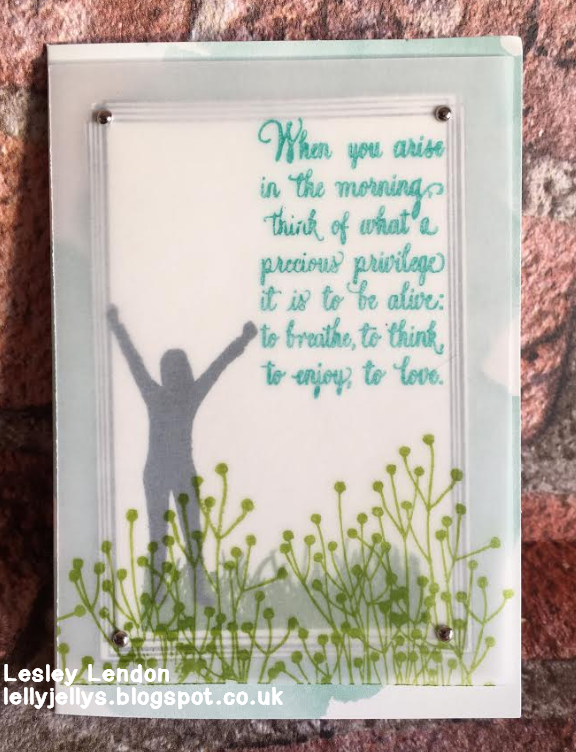 When you arise
in the morning,
think of what a
precious privilege
it is to be alive:
to breathe, to think,
to enjoy, to love.
Lesley Lendon
lellyjellys.blogspot.co.uk